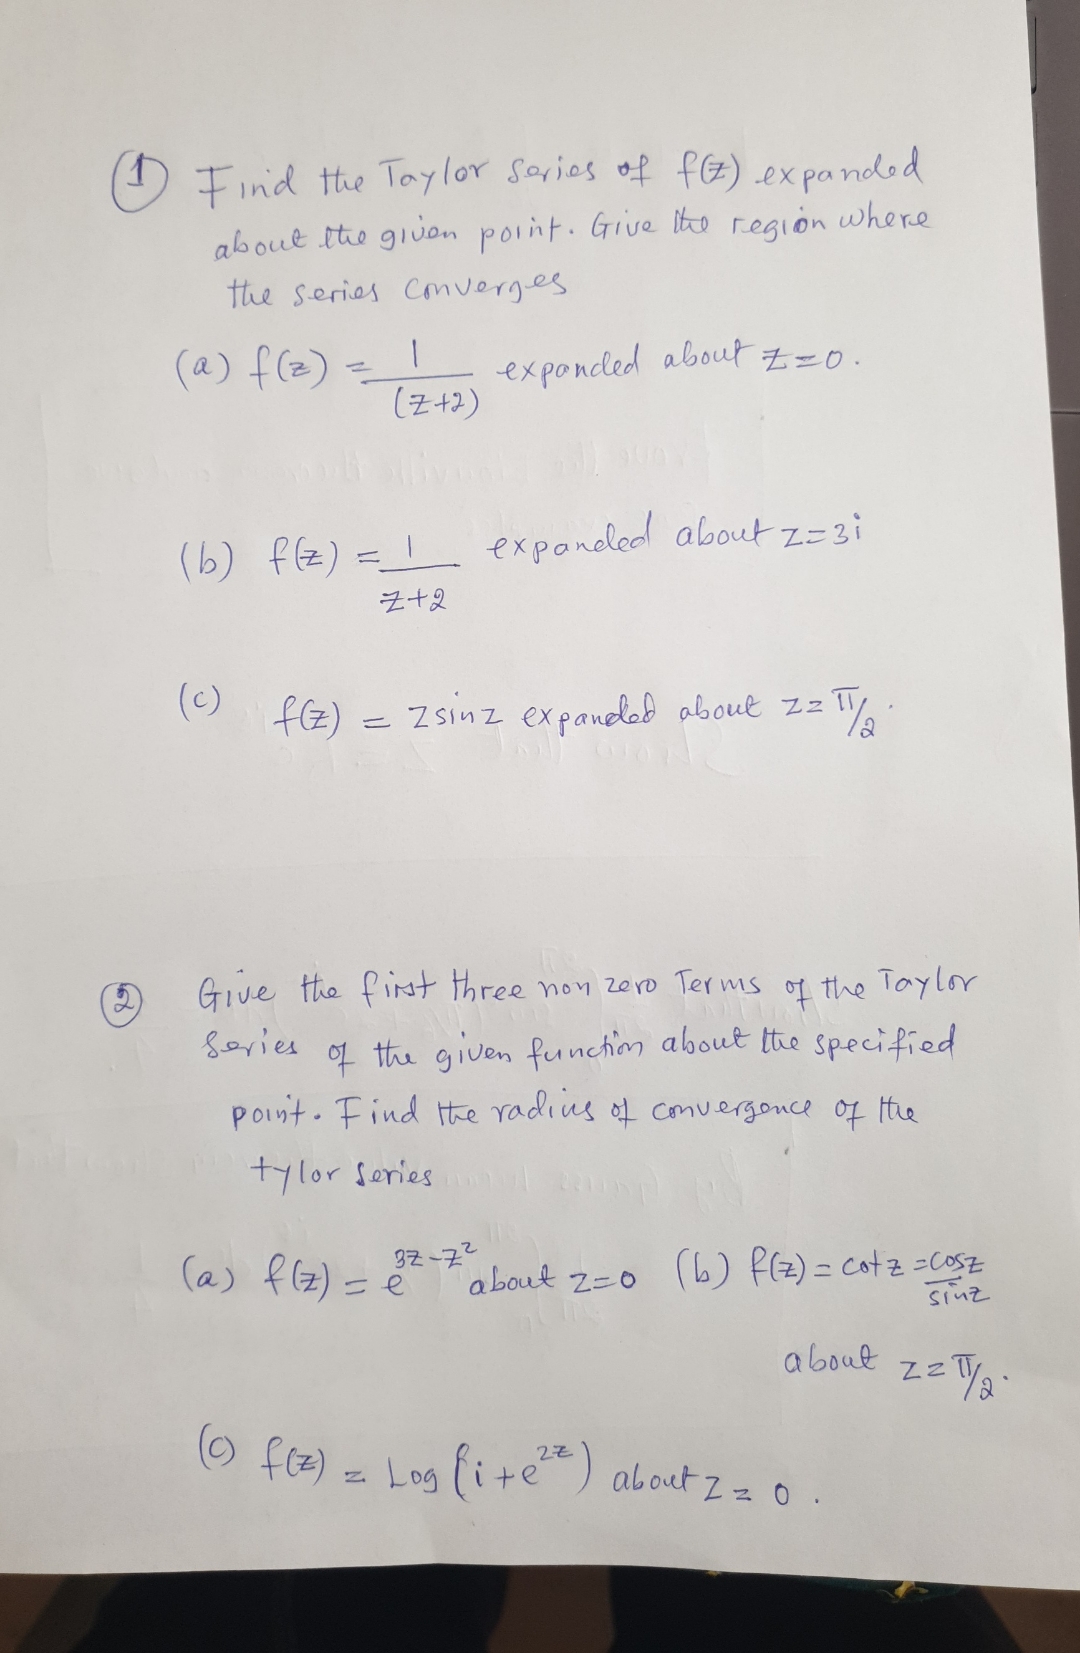 ① Find the Taylor Series of f(z) expanded
about the given point. Give the region where
the series converges
(a) f(z) = 1/(z+2) expanded about z=0.
(b) f(z) = 1/z+2 expanded about z=3i
(c) f(z) = z sin z expanded about z=π/2.
② Give the first three non zero Terms of the Taylor
Series of the given function about the specified
point. Find the radius of convergence of the
tylor series
(a) f(z) = e^{3z-z^2} about z=0 (b) f(z) = cot z = cosz/sinz
about z=π/2.
(c) f(z) = Log (i+e^{2z}) about z=0.